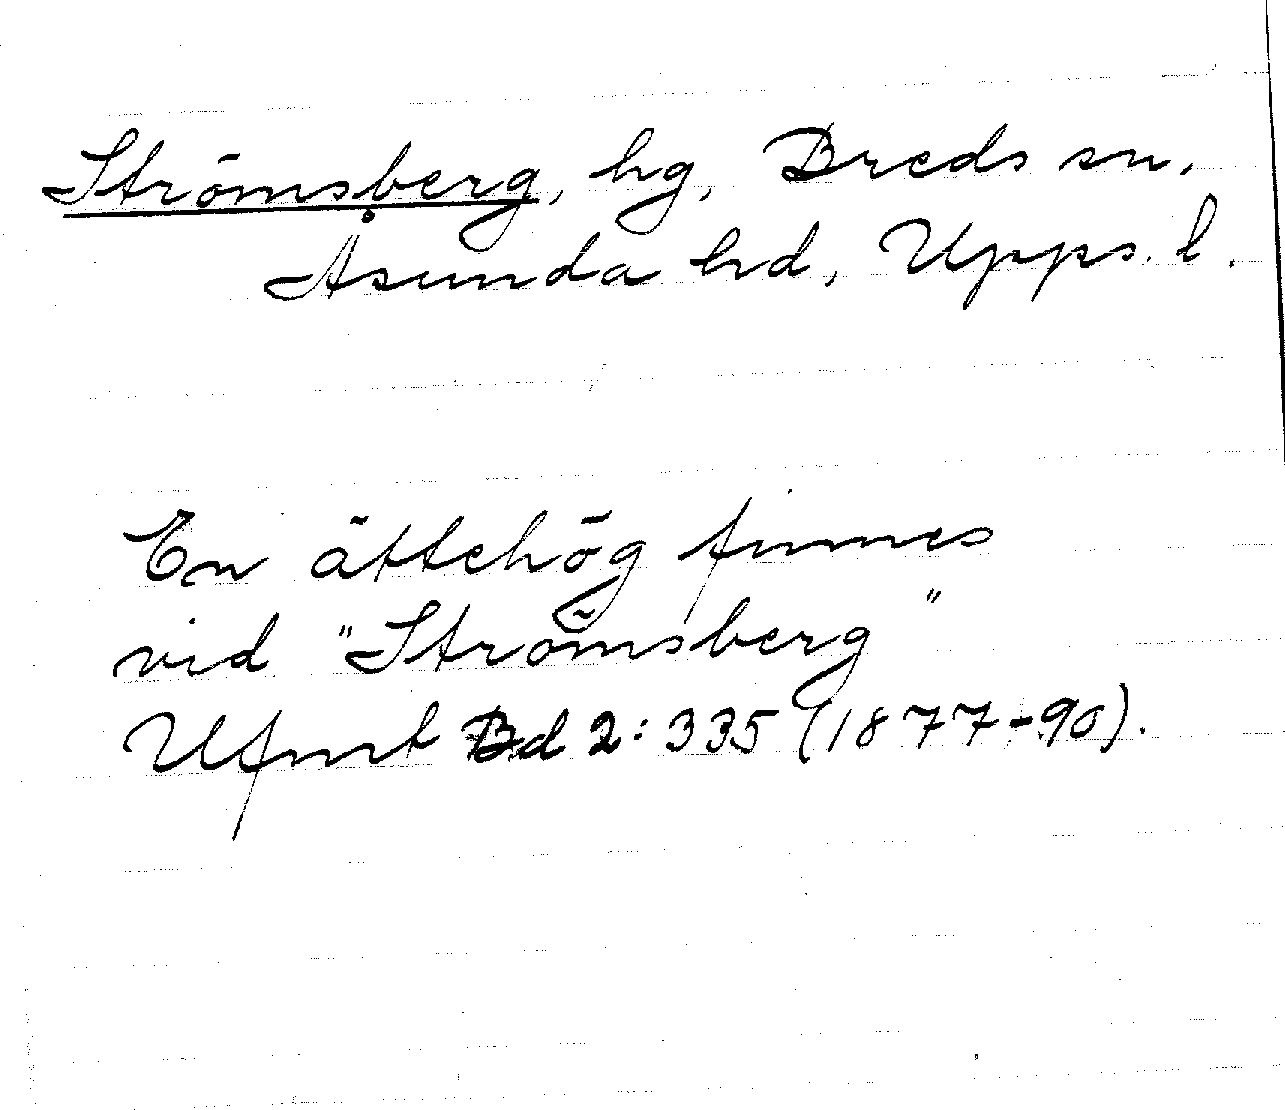 Strömsberg, hg, Breds sn,
Åsunda hd, Upps. l.
En ättehög finnes
vid "Strömsberg"
Ufmt Bd 2: 335 (1877-90).